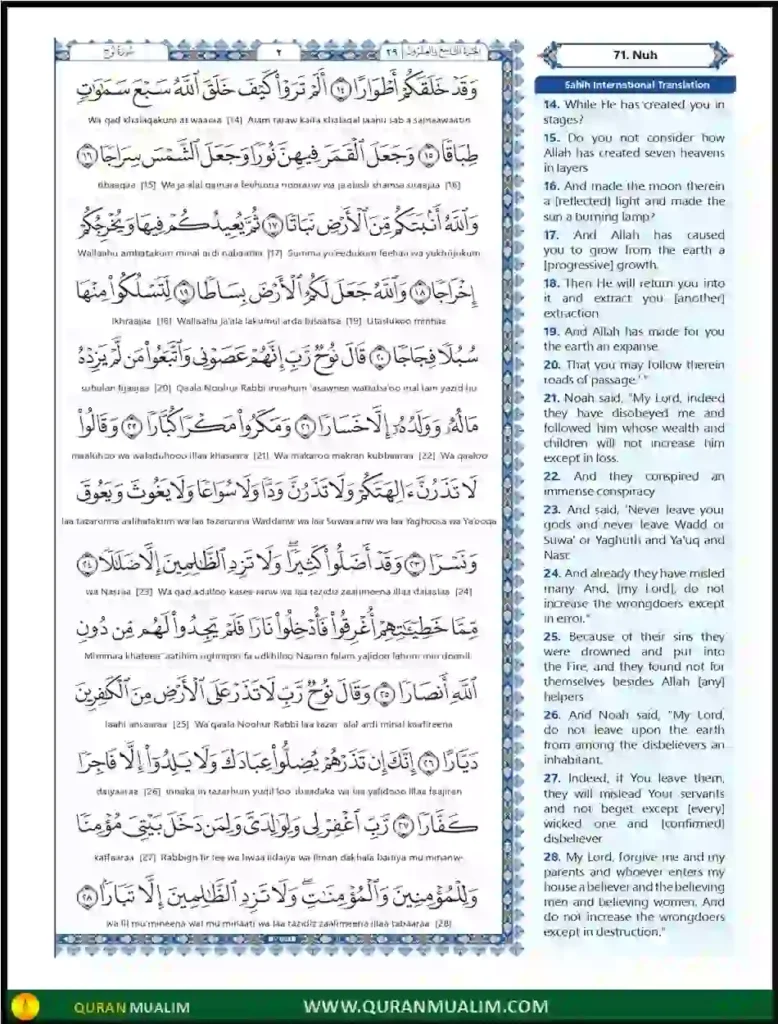 سورة نوح
٢
الجزء التاسع والعشرون ٢٩
وَقَدْ خَلَقَكُمْ أَطْوَارًا ﴿١٤﴾ أَلَمْ تَرَوْا۟ كَيْفَ خَلَقَ ٱللَّهُ سَبْعَ سَمَـٰوَٰتٍ
Wa qad khalaqakum at waaraa [14] Alam taraw kaifa khalaqal laahu sab'a samaawaatin
طِبَاقًا ﴿١٥﴾ وَجَعَلَ ٱلْقَمَرَ فِيهِنَّ نُورًا وَجَعَلَ ٱلشَّمْسَ سِرَاجًا ﴿١٦﴾
tibaaqaa [15] Wa ja'alal qamara feehinna nooranw wa ja'alash shamsa siraajaa [16]
وَٱللَّهُ أَنۢبَتَكُم مِّنَ ٱلْأَرْضِ نَبَاتًا ﴿١٧﴾ ثُمَّ يُعِيدُكُمْ فِيهَا وَيُخْرِجُكُمْ
Wallaahu ambatakum minal ardi nabaataa [17] Summa yu'eedukum feehaa wa yukhrijukum
إِخْرَاجًا ﴿١٨﴾ وَٱللَّهُ جَعَلَ لَكُمُ ٱلْأَرْضَ بِسَاطًا ﴿١٩﴾ لِّتَسْلُكُوا۟ مِنْهَا
ikhraajaa [18] Wallaahu ja'ala lakumul arda bisaataa [19] Litaslukoo minhaa
سُبُلًا فِجَاجًا ﴿٢٠﴾ قَالَ نُوحٌ رَّبِّ إِنَّهُمْ عَصَوْنِى وَٱتَّبَعُوا۟ مَن لَّمْ يَزِدْهُ
subulan fijaajaa [20] Qaala Noohur Rabbi innahum 'asawnee wattaba'oo mal lam yazid hu
مَالُهُۥ وَوَلَدُهُۥٓ إِلَّا خَسَارًا ﴿٢١﴾ وَمَكَرُوا۟ مَكْرًا كُبَّارًا ﴿٢٢﴾ وَقَالُوا۟
maaluhoo wa waladuhooo illaa khasaara [21] Wa makaroo makran kubbaaraa [22] Wa qaaloo
لَا تَذَرُنَّ ءَالِهَتَكُمْ وَلَا تَذَرُنَّ وَدًّا وَلَا سُوَاعًا وَلَا يَغُوثَ وَيَعُوقَ
laa tazarunna aalihatakum wa laa tazarunna Waddanw wa laa Suwaa'anw wa laa Yaghoosa wa Ya'ooqa
وَنَسْرًا ﴿٢٣﴾ وَقَدْ أَضَلُّوا۟ كَثِيرًا ۖ وَلَا تَزِدِ ٱلظَّـٰلِمِينَ إِلَّا ضَلَـٰلًا ﴿٢٤﴾
wa Nasraa [23] Wa qad adalloo kasee ranw wa laa tazidiz zaalimeena illaa dalaalaa [24]
مِّمَّا خَطِيٓـَٔـٰتِهِمْ أُغْرِقُوا۟ فَأُدْخِلُوا۟ نَارًا فَلَمْ يَجِدُوا۟ لَهُم مِّن دُونِ
Mimmaa khateee' aatihim ughriqoo fa udkhiloo Naaran falam yajidoo lahum min doonil
ٱللَّهِ أَنصَارًا ﴿٢٥﴾ وَقَالَ نُوحٌ رَّبِّ لَا تَذَرْ عَلَى ٱلْأَرْضِ مِنَ ٱلْكَـٰفِرِينَ
laahi ansaaraa [25] Wa qaala Noohur Rabbi laa tazar 'alal ardi minal kaafireena
دَيَّارًا ﴿٢٦﴾ إِنَّكَ إِن تَذَرْهُمْ يُضِلُّوا۟ عِبَادَكَ وَلَا يَلِدُوٓا۟ إِلَّا فَاجِرًا
daiyaaraa [26] innaka in tazarhum yudil loo 'ibaadaka wa laa yalidooo illaa faajiran
كَفَّارًا ﴿٢٧﴾ رَّبِّ ٱغْفِرْ لِى وَلِوَٰلِدَىَّ وَلِمَن دَخَلَ بَيْتِىَ مُؤْمِنًا
kaffaaraa [27] Rabbigh fir lee wa liwaa lidaiya wa liman dakhala baitiya mu'minanw-
وَلِلْمُؤْمِنِينَ وَٱلْمُؤْمِنَـٰتِ وَلَا تَزِدِ ٱلظَّـٰلِمِينَ إِلَّا تَبَارًۢا ﴿٢٨﴾
wa lil mu'mineena wal mu'minaati wa laa tazidiz zaalimeena illaa tabaaraa [28]
71. Nuh
Sahih International Translation
14. While He has created you in
stages?
15. Do you not consider how
Allah has created seven heavens
in layers
16. And made the moon therein
a [reflected] light and made the
sun a burning lamp?
17. And Allah has caused
you to grow from the earth a
[progressive] growth.
18. Then He will return you into
it and extract you [another]
extraction
19. And Allah has made for you
the earth an expanse
20. That you may follow therein
roads of passage.' "
21. Noah said, "My Lord, indeed
they have disobeyed me and
followed him whose wealth and
children will not increase him
except in loss.
22. And they conspired an
immense conspiracy
23. And said, 'Never leave your
gods and never leave Wadd or
Suwa' or Yaghuth and Ya'uq and
Nasr.
24. And already they have misled
many And, [my Lord], do not
increase the wrongdoers except
in error."
25. Because of their sins they
were drowned and put into
the Fire, and they found not for
themselves besides Allah [any]
helpers
26. And Noah said, "My Lord,
do not leave upon the earth
from among the disbelievers an
inhabitant.
27. Indeed, if You leave them,
they will mislead Your servants
and not beget except [every]
wicked one and [confirmed]
disbeliever
28. My Lord, forgive me and my
parents and whoever enters my
house a believer and the believing
men and believing women. And
do not increase the wrongdoers
except in destruction."
QURAN MUALIM
WWW.QURANMUALIM.COM